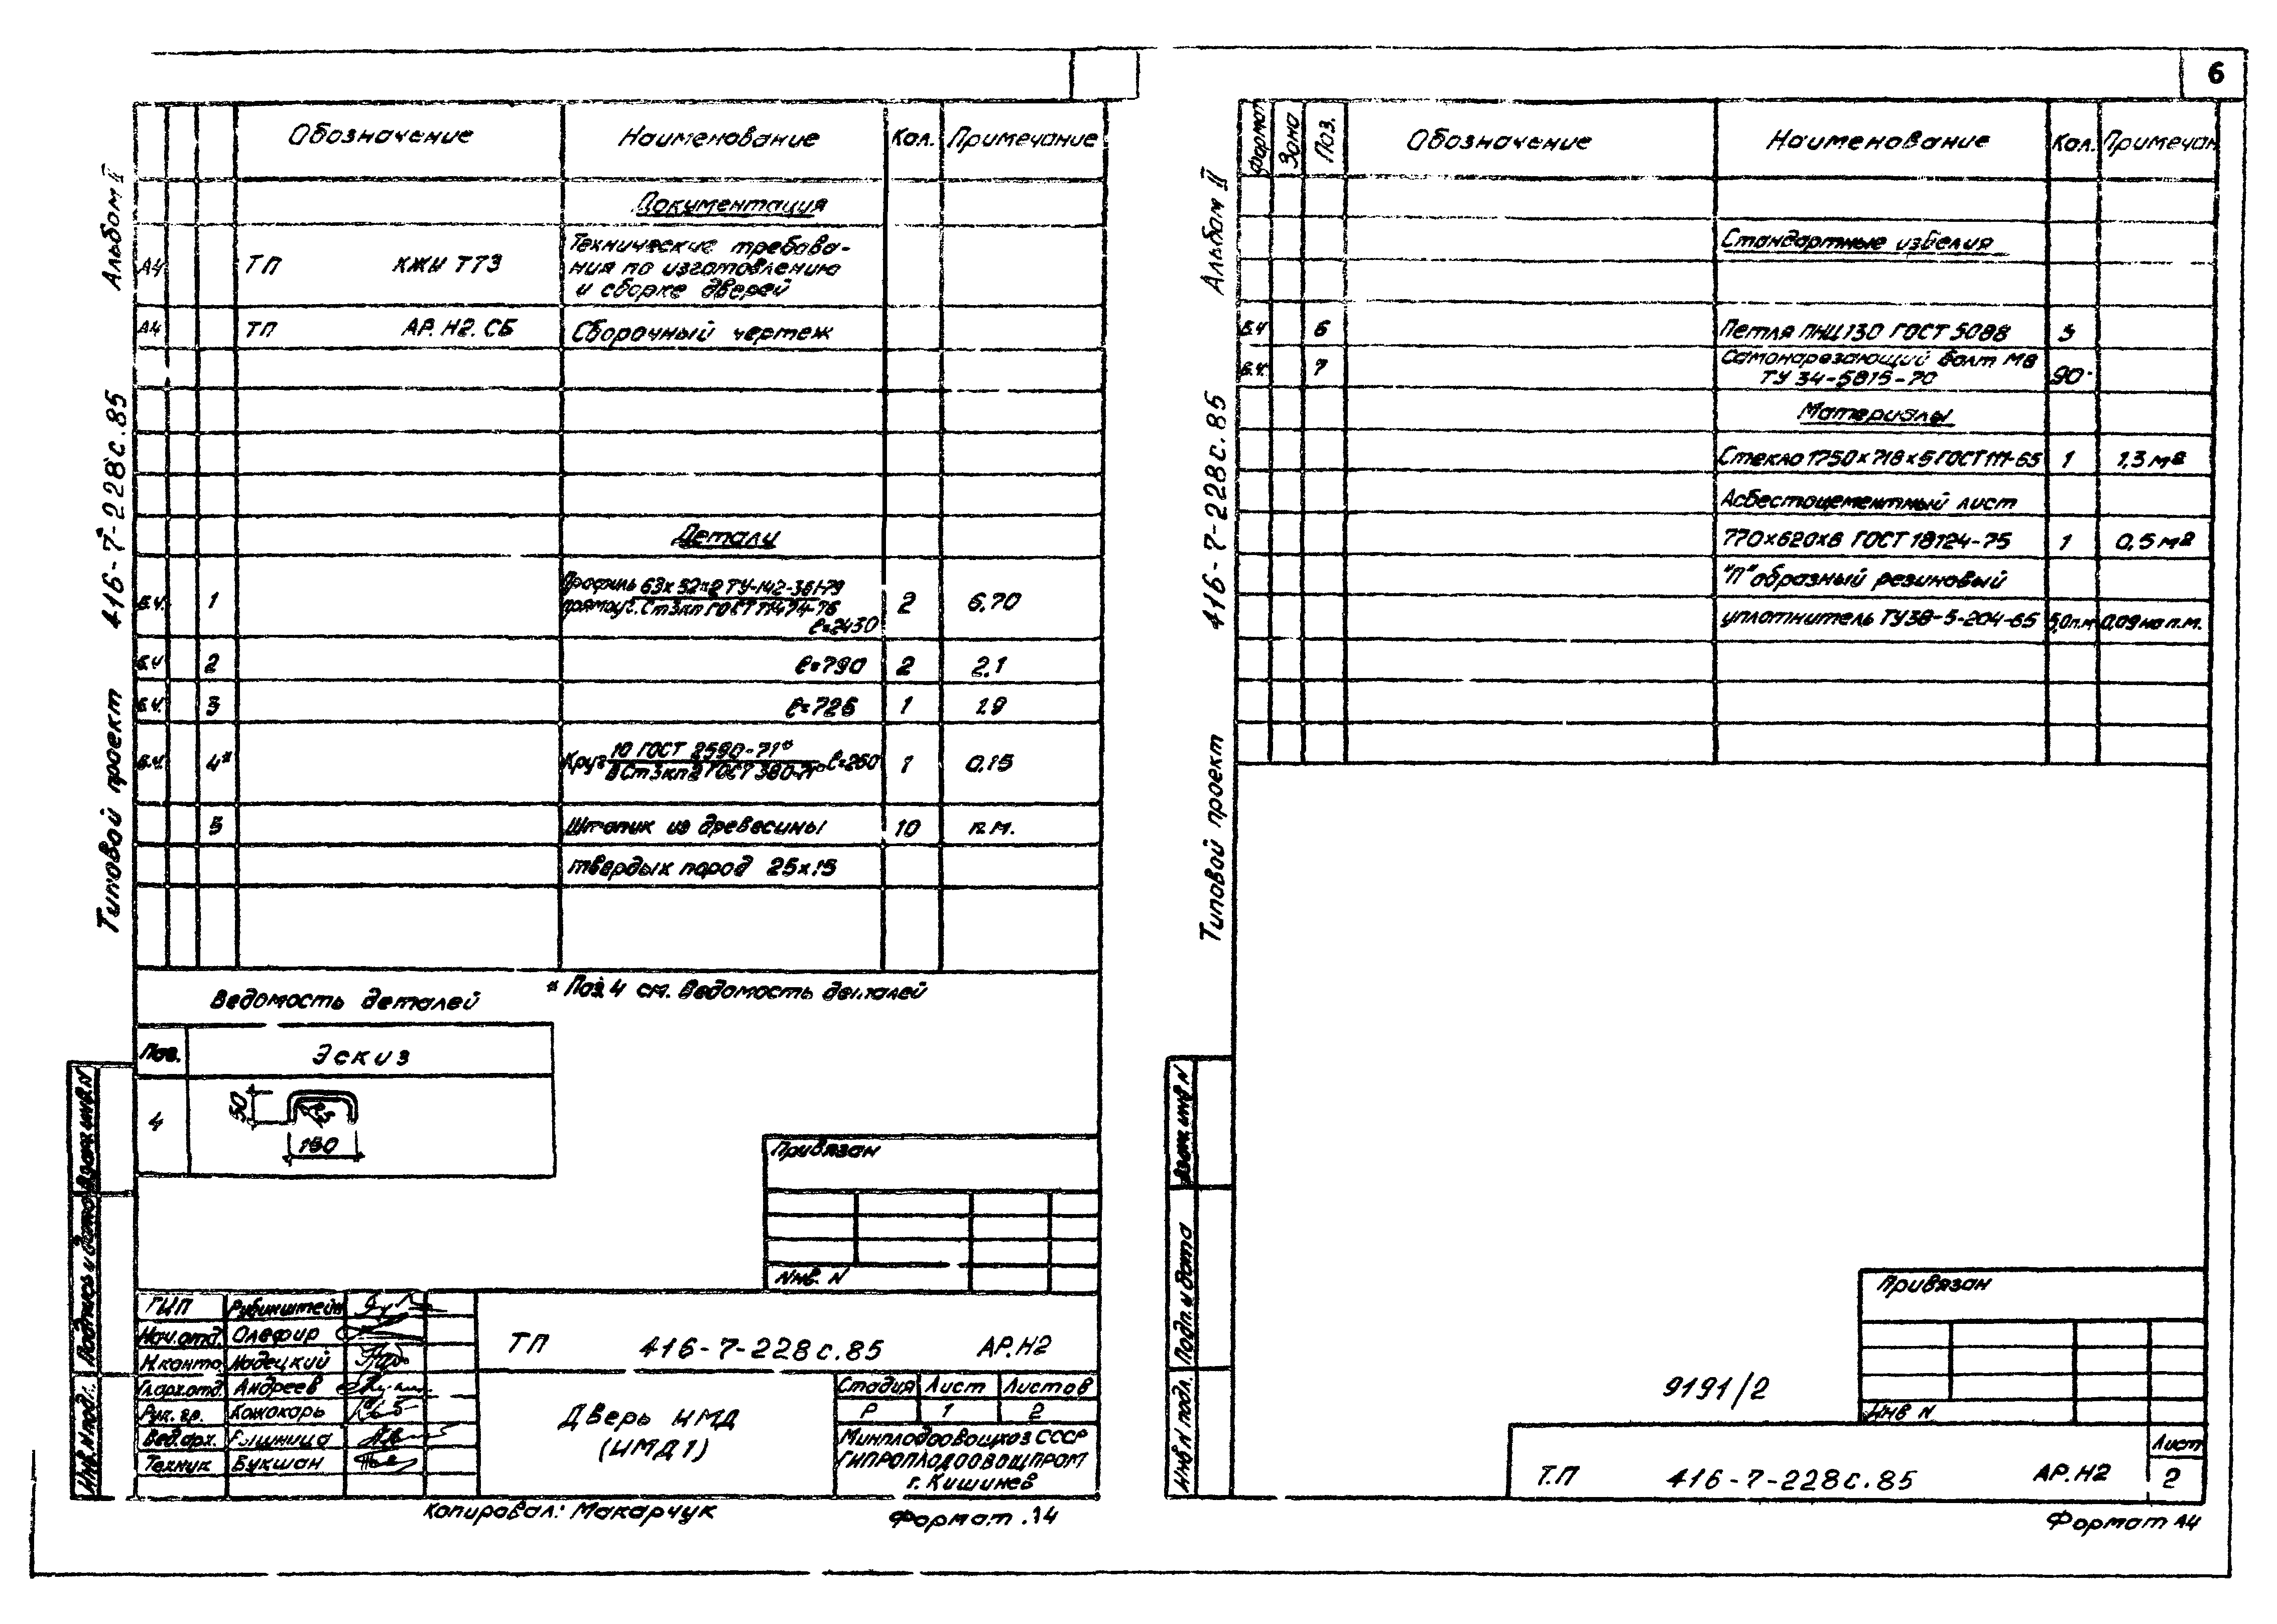 6
Альбом II
Типовой проект 416-7-228с.85
Обозначение Наименование Кол. Примечание
Документация
А4 ТП КЖИ ТТ3 Технические требова-
ния по изготовлению
и сборке дверей
А4 ТП АР.Н2.СБ Сборочный чертеж
Детали
Б.Ч. 1 Профиль 63х32х2 ТУ-142-361-79 2 6.70
прямоуг. Ст3кп ГОСТ 11474-76
ℓ=2430
Б.Ч 2 ℓ=790 2 2.1
Б.Ч. 3 ℓ=726 1 1.9
Б.Ч. 4* Круг 10 ГОСТ 2590-71* ℓ=250 1 0.15
ВСт3кп2 ГОСТ 380-71*
5 Штапик из древесины 10 п.м.
твердых пород 25х15
Ведомость деталей
* Поз.4 см. Ведомость деталей
Поз. Эскиз
4
50
150
Привязан
Инв. N
Взам. инв. N
Подпись и дата
Инв. N подл.
ГИП Рубинштейн
Нач.отд. Олефир
Н.контр. Мадецкий
Гл.арх.отд. Андреев
Рук. гр. Кожокарь
Вед.арх. Рышница
Техник Букшан
ТП 416-7-228с.85 АР.Н2
Дверь НМД
(НМД1)
Стадия Лист Листов
Р 1 2
Минплодоовощхоз СССР
ГИПРОПЛОДООВОЩПРОМ
г. Кишинев
Копировал: Макарчук
Формат А4
Альбом II
Типовой проект 416-7-228с.85
Формат Зона Поз. Обозначение Наименование Кол. Примечан
Стандартные изделия
Б.Ч 6 Петля ПНЦ130 ГОСТ 5088 3
Б.Ч. 7 Самонарезающий болт М8
ТУ 34-5815-70 90
Материалы
Стекло 1750х718х5 ГОСТ 111-65 1 1,3 м2
Асбестоцементный лист
770х620х8 ГОСТ 18124-75 1 0,5 м2
"П"образный резиновый
уплотнитель ТУ38-5-204-65 5,0п.м 0,09 на п.м.
Взам. инв N
Подп. и дата
Инв N подл.
9191/2
Привязан
Инв N
Т.П 416-7-228с.85 АР.Н2
Лист
2
Формат А4